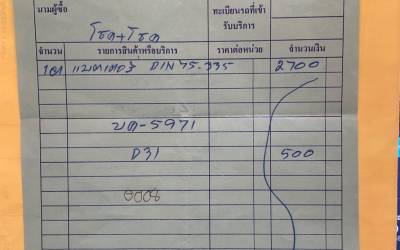 นามผู้ซื้อ ทะเบียนรถที่เข้ารับบริการ
โชค+โชค
จำนวน รายการสินค้าหรือบริการ ราคาต่อหน่วย จำนวนเงิน
1ลูก แบตเตอรี่ DIN 75-335 2700
บต-5971
D31 500
0008